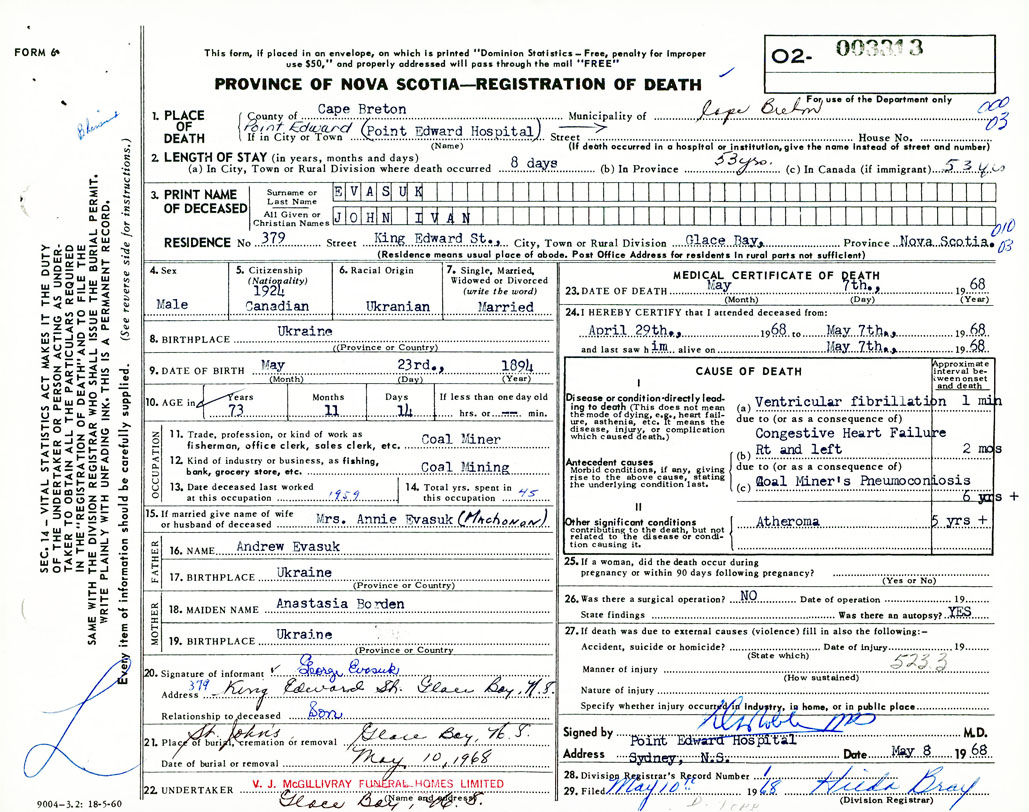 FORM 6
This form, if placed in an envelope, on which is printed "Dominion Statistics – Free, penalty for improper
use $50," and properly addressed will pass through the mail "FREE"
O2- 003313
PROVINCE OF NOVA SCOTIA—REGISTRATION OF DEATH
For use of the Department only
000
03
1. PLACE OF DEATH
County of Cape Breton Municipality of Cape Breton
Point Edward (Point Edward Hospital)
If in City or Town Street House No.
(Name) (If death occurred in a hospital or institution, give the name instead of street and number)
2. LENGTH OF STAY (in years, months and days)
(a) In City, Town or Rural Division where death occurred 8 days (b) In Province 53 yrs. (c) In Canada (if immigrant) 53 yrs
3. PRINT NAME OF DECEASED
Surname or Last Name EVASUK
All Given or Christian Names JOHN IVAN
010
03
RESIDENCE No 379 Street King Edward St., City, Town or Rural Division Glace Bay, Province Nova Scotia.
(Residence means usual place of abode. Post Office Address for residents in rural parts not sufficient)
4. Sex
Male
5. Citizenship
(Nationality)
1924
Canadian
6. Racial Origin
Ukranian
7. Single, Married,
Widowed or Divorced
(write the word)
Married
8. BIRTHPLACE Ukraine
((Province or Country)
9. DATE OF BIRTH May 23rd., 1894
(Month) (Day) (Year)
10. AGE in Years Months Days If less than one day old
73 11 14 hrs. or — min.
OCCUPATION
11. Trade, profession, or kind of work as
fisherman, office clerk, sales clerk, etc. Coal Miner
12. Kind of industry or business, as fishing,
bank, grocery store, etc. Coal Mining
13. Date deceased last worked
at this occupation 1959
14. Total yrs. spent in
this occupation 45
15. If married give name of wife
or husband of deceased Mrs. Annie Evasuk
FATHER
16. NAME Andrew Evasuk
17. BIRTHPLACE Ukraine
(Province or Country)
MOTHER
18. MAIDEN NAME Anastasia Borden
19. BIRTHPLACE Ukraine
(Province or Country
20. Signature of informant George Evasuk
Address 379 King Edward St. Glace Bay, N.S.
Relationship to deceased Son
St. John's Glace Bay, N.S.
21. Place of burial, cremation or removal
Date of burial or removal May, 10, 1968
22. UNDERTAKER V. J. McGILLIVRAY FUNERAL HOMES LIMITED
Glace Bay, N.S.
(Name and address)
MEDICAL CERTIFICATE OF DEATH
23. DATE OF DEATH May 7th., 1968
(Month) (Day) (Year)
24. I HEREBY CERTIFY that I attended deceased from:
April 29th., 1968 to May 7th., 1968
and last saw him alive on May 7th., 1968
CAUSE OF DEATH
Approximate
interval be-
tween onset
and death
I
Disease or condition directly lead-
ing to death (This does not mean
the mode of dying, e.g., heart fail-
ure, asthenia, etc. It means the
disease, injury, or complication
which caused death.)
(a) Ventricular fibrillation 1 min
due to (or as a consequence of)
Congestive Heart Failure
(b) Rt and left 2 mos
Antecedent causes
Morbid conditions, if any, giving
rise to the above cause, stating
the underlying condition last.
due to (or as a consequence of)
(c) Coal Miner's Pneumoconiosis
6 yrs +
II
Other significant conditions
contributing to the death, but not
related to the disease or condi-
tion causing it.
Atheroma 5 yrs +
25. If a woman, did the death occur during
pregnancy or within 90 days following pregnancy?
(Yes or No)
26. Was there a surgical operation? NO Date of operation 19
State findings Was there an autopsy? YES
27. If death was due to external causes (violence) fill in also the following:–
Accident, suicide or homicide? Date of injury 19
(State which) 523.3
Manner of injury
(How sustained)
Nature of injury
Specify whether injury occurred in Industry, in home, or in public place
Signed by M.D.
Address Point Edward Hospital
Sydney, N.S. Date May 8 1968
28. Division Registrar's Record Number 1
29. Filed May 10th 1968 Hilda Bray
(Division Registrar)
SEC. 14 – VITAL STATISTICS ACT MAKES IT THE DUTY
OF THE UNDERTAKER OR PERSON ACTING AS UNDER-
TAKER TO OBTAIN ALL THE PARTICULARS REQUIRED
IN THE "REGISTRATION OF DEATH" AND TO FILE THE
SAME WITH THE DIVISION REGISTRAR WHO SHALL ISSUE THE BURIAL PERMIT.
WRITE PLAINLY WITH UNFADING INK. THIS IS A PERMANENT RECORD.
Every item of information should be carefully supplied. (See reverse side for instructions.)
9004–3.2: 18-5-60